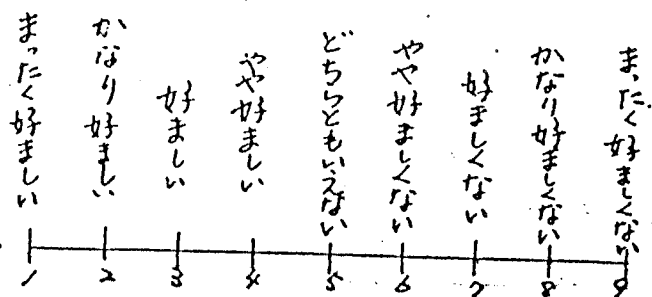 まったく好ましい
かなり好ましい
好ましい
やや好ましい
どちらともいえない
やや好ましくない
好ましくない
かなり好ましくない
まったく好ましくない
1 2 3 4 5 6 7 8 9